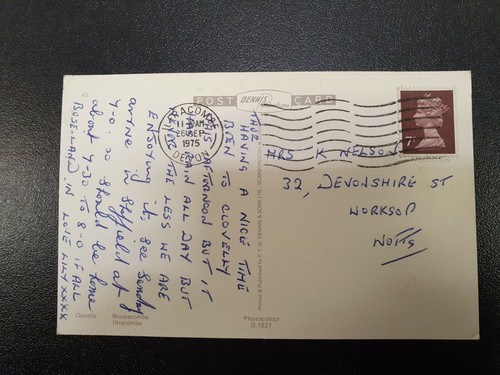 POST DENNIS CARD
ILFRACOMBE
11 30AM
26 SEP
1975
DEVON
7P
HAVING A NICE TIME
BEEN TO CLOVELLY
THIS AFTERNOON BUT IT
RAIN ALL DAY BUT
NONE THE LESS WE ARE
ENJOYING IT, SEE Sunday
arrive in Sheffield at
7-0. so should be home
about 7-30 TO 8.0 IF ALL
BUSES LAND IN LOVE LILY XXXX
MRS K NELSON
32, DEVONSHIRE ST
WORKSOP
NOTTS
Clovelly Woolacombe
Ilfracombe
Photocolour
D.1821
Printed & Published by E. T. W. DENNIS & SONS LTD.